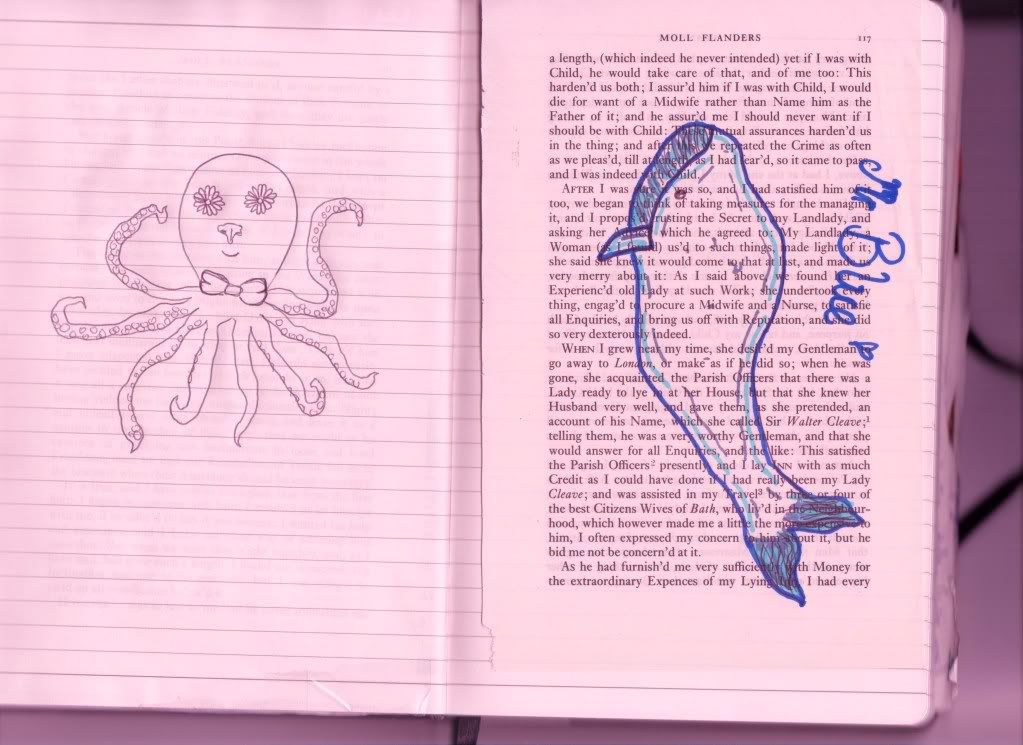 MOLL FLANDERS 117
a length, (which indeed he never intended) yet if I was with
Child, he would take care of that, and of me too: This
harden'd us both; I assur'd him if I was with Child, I would
die for want of a Midwife rather than Name him as the
Father of it; and he assur'd me I should never want if I
should be with Child: These mutual assurances harden'd us
in the thing; and after this we repeated the Crime as often
as we pleas'd, till at length, as I had fear'd, so it came to pass,
and I was indeed with Child.
AFTER I was sure I was so, and I had satisfied him of it
too, we began to think of taking measures for the managing
it, and I propos'd trusting the Secret to my Landlady, and
asking her Advice, which he agreed to: My Landlady, a
Woman (as I found) us'd to such things, made light of it;
she said she knew it would come to that at last, and made us
very merry about it: As I said above, we found her an
Experienc'd old Lady at such Work; she undertook every
thing, engag'd to procure a Midwife and a Nurse, to satisfie
all Enquiries, and bring us off with Reputation, and she did
so very dexterously indeed.
WHEN I grew near my time, she desir'd my Gentleman to
go away to London, or make as if he did so; when he was
gone, she acquainted the Parish Officers that there was a
Lady ready to lye in at her House, but that she knew her
Husband very well, and gave them, as she pretended, an
account of his Name, which she called Sir Walter Cleave;¹
telling them, he was a very worthy Gentleman, and that she
would answer for all Enquiries, and the like: This satisfied
the Parish Officers² presently, and I lay INN with as much
Credit as I could have done if I had really been my Lady
Cleave; and was assisted in my Travel³ by three or four of
the best Citizens Wives of Bath, who liv'd in the Neighbour-
hood, which however made me a little the more expensive to
him, I often expressed my concern to him about it, but he
bid me not be concern'd at it.
As he had furnish'd me very sufficiently with Money for
the extraordinary Expences of my Lying Inn, I had every
Mr Blue